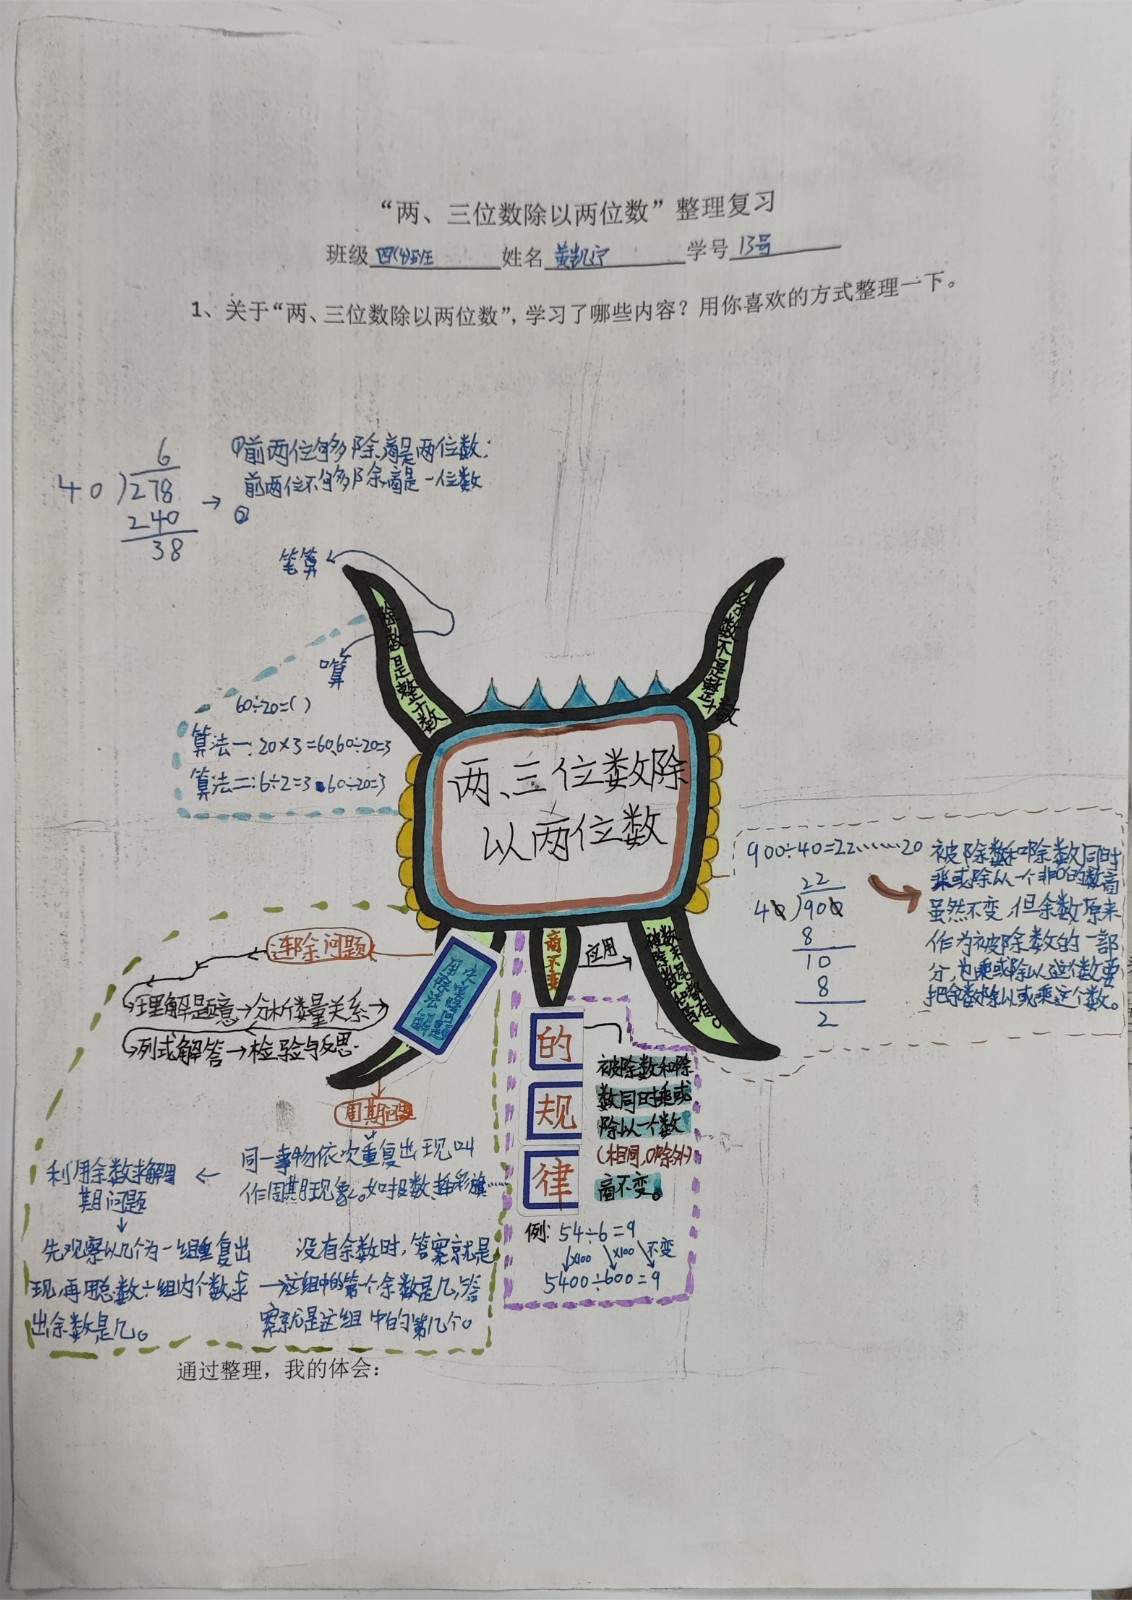 “两、三位数除以两位数”整理复习
班级 四(4)班 姓名 黄凯宁 学号 13号
1、关于“两、三位数除以两位数”，学习了哪些内容？用你喜欢的方式整理一下。
6
40)278
240
38
→
①前两位够除,商是两位数；
前两位不够除,商是一位数
②
笔算
口算
除数是整十数
除数不是整十数
60÷20=( )
算法一：20×3=60,60÷20=3
算法二：6÷2=3 60÷20=3
两、三位数除
以两位数
900÷40=22……20
22
40)900
8
10
8
2
被除数和除数同时
乘或除以一个非0的数商
虽然不变,但余数原来
作为被除数的一部
分,也乘或除以这个数要
把余数除以或乘这个数。
连除问题
理解题意→分析数量关系
列式解答→检验与反思.
周期问题
同一事物依次重复出现叫
作周期现象。如报数、彩旗……
利用余数求解周
期问题
先观察以几个为一组重复出
现,再用总数÷组内个数,求
出余数是几。
没有余数时,答案就是
这组中的第一个,余数是几,答
案就是这组中的第几个。
商不变
的
规
律
应用
被除数和除
数同时乘或
除以一个数
(相同,0除外)
商不变。
例：54÷6=9
×100 ×100 不变
5400÷600=9
通过整理，我的体会：